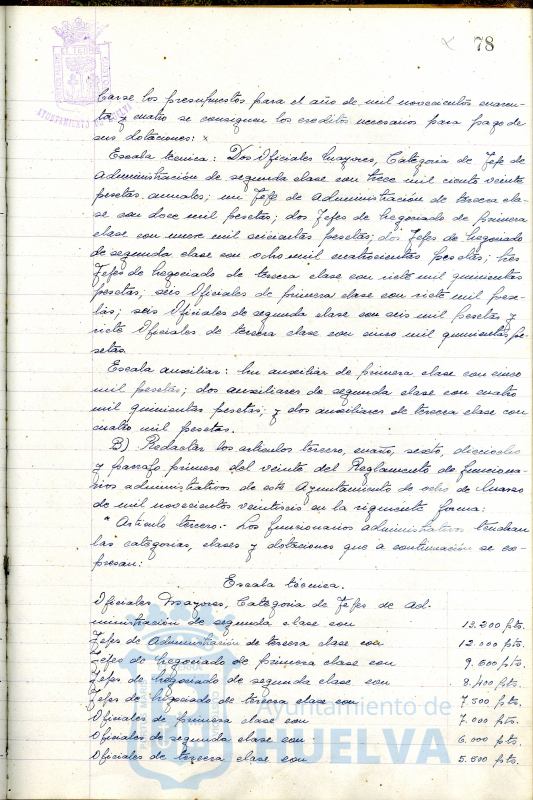 78
carse los presupuestos para el año de mil novecientos cuaren-
ta y cuatro se consignen los creditos necesarios para pago de
sus dotaciones: x
Escala tecnica: Dos Oficiales Mayores, Categoria de Jefe de
Administración de segunda clase con trece mil ciento veinte
pesetas anuales; un Jefe de Administración de tercera cla-
se con doce mil pesetas; dos Jefes de Negociado de primera
clase con nueve mil seiscientas pesetas; dos Jefes de Negociado
de segunda clase con ocho mil cuatrocientas pesetas; tres
Jefes de Negociado de tercera clase con siete mil quinientas
pesetas; seis Oficiales de primera clase con siete mil pese-
tas; seis Oficiales de segunda clase con seis mil pesetas y
siete Oficiales de tercera clase con cinco mil quinientas pe-
setas.
Escala auxiliar: Un auxiliar de primera clase con cinco
mil pesetas; dos auxiliares de segunda clase con cuatro
mil quinientas pesetas; y dos auxiliares de tercera clase con
cuatro mil pesetas.
B) Redactar los articulos tercero, cuarto, sexto, dieciocho
y parrafo primero del veinte del Reglamento de funciona-
rios administrativos de este Ayuntamiento de ocho de Marzo
de mil novecientos veintiseis en la siguiente forma:
" Articulo tercero.- Los funcionarios administrativos tendran
las categorias, clases y dotaciones que a continuación se ex-
presan:
Escala técnica.
Oficiales Mayores, Categoria de Jefes de Ad-
ministración de segunda clase con 13.200 pts.
Jefes de Administración de tercera clase con 12.000 pts.
Jefes de Negociado de primera clase con 9.600 pts.
Jefes de Negociado de segunda clase con 8.400 pts.
Jefes de Negociado de tercera clase con 7.500 pts.
Oficiales de primera clase con 7.000 pts.
Oficiales de segunda clase con 6.000 pts.
Oficiales de tercera clase con 5.500 pts.
Ayuntamiento de
HUELVA